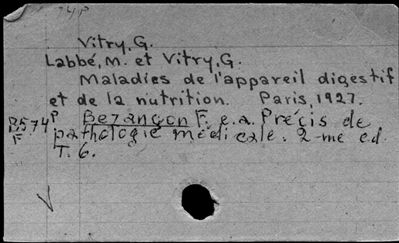 Vitry, G.
Labbé, M. et Vitry, G.
Maladies de l'appareil digestif
et de la nutrition. Paris, 1927.
B574P Bezançon F. e.a. Précis de
F pathologie médicale. 2-me ed.
T. 6.